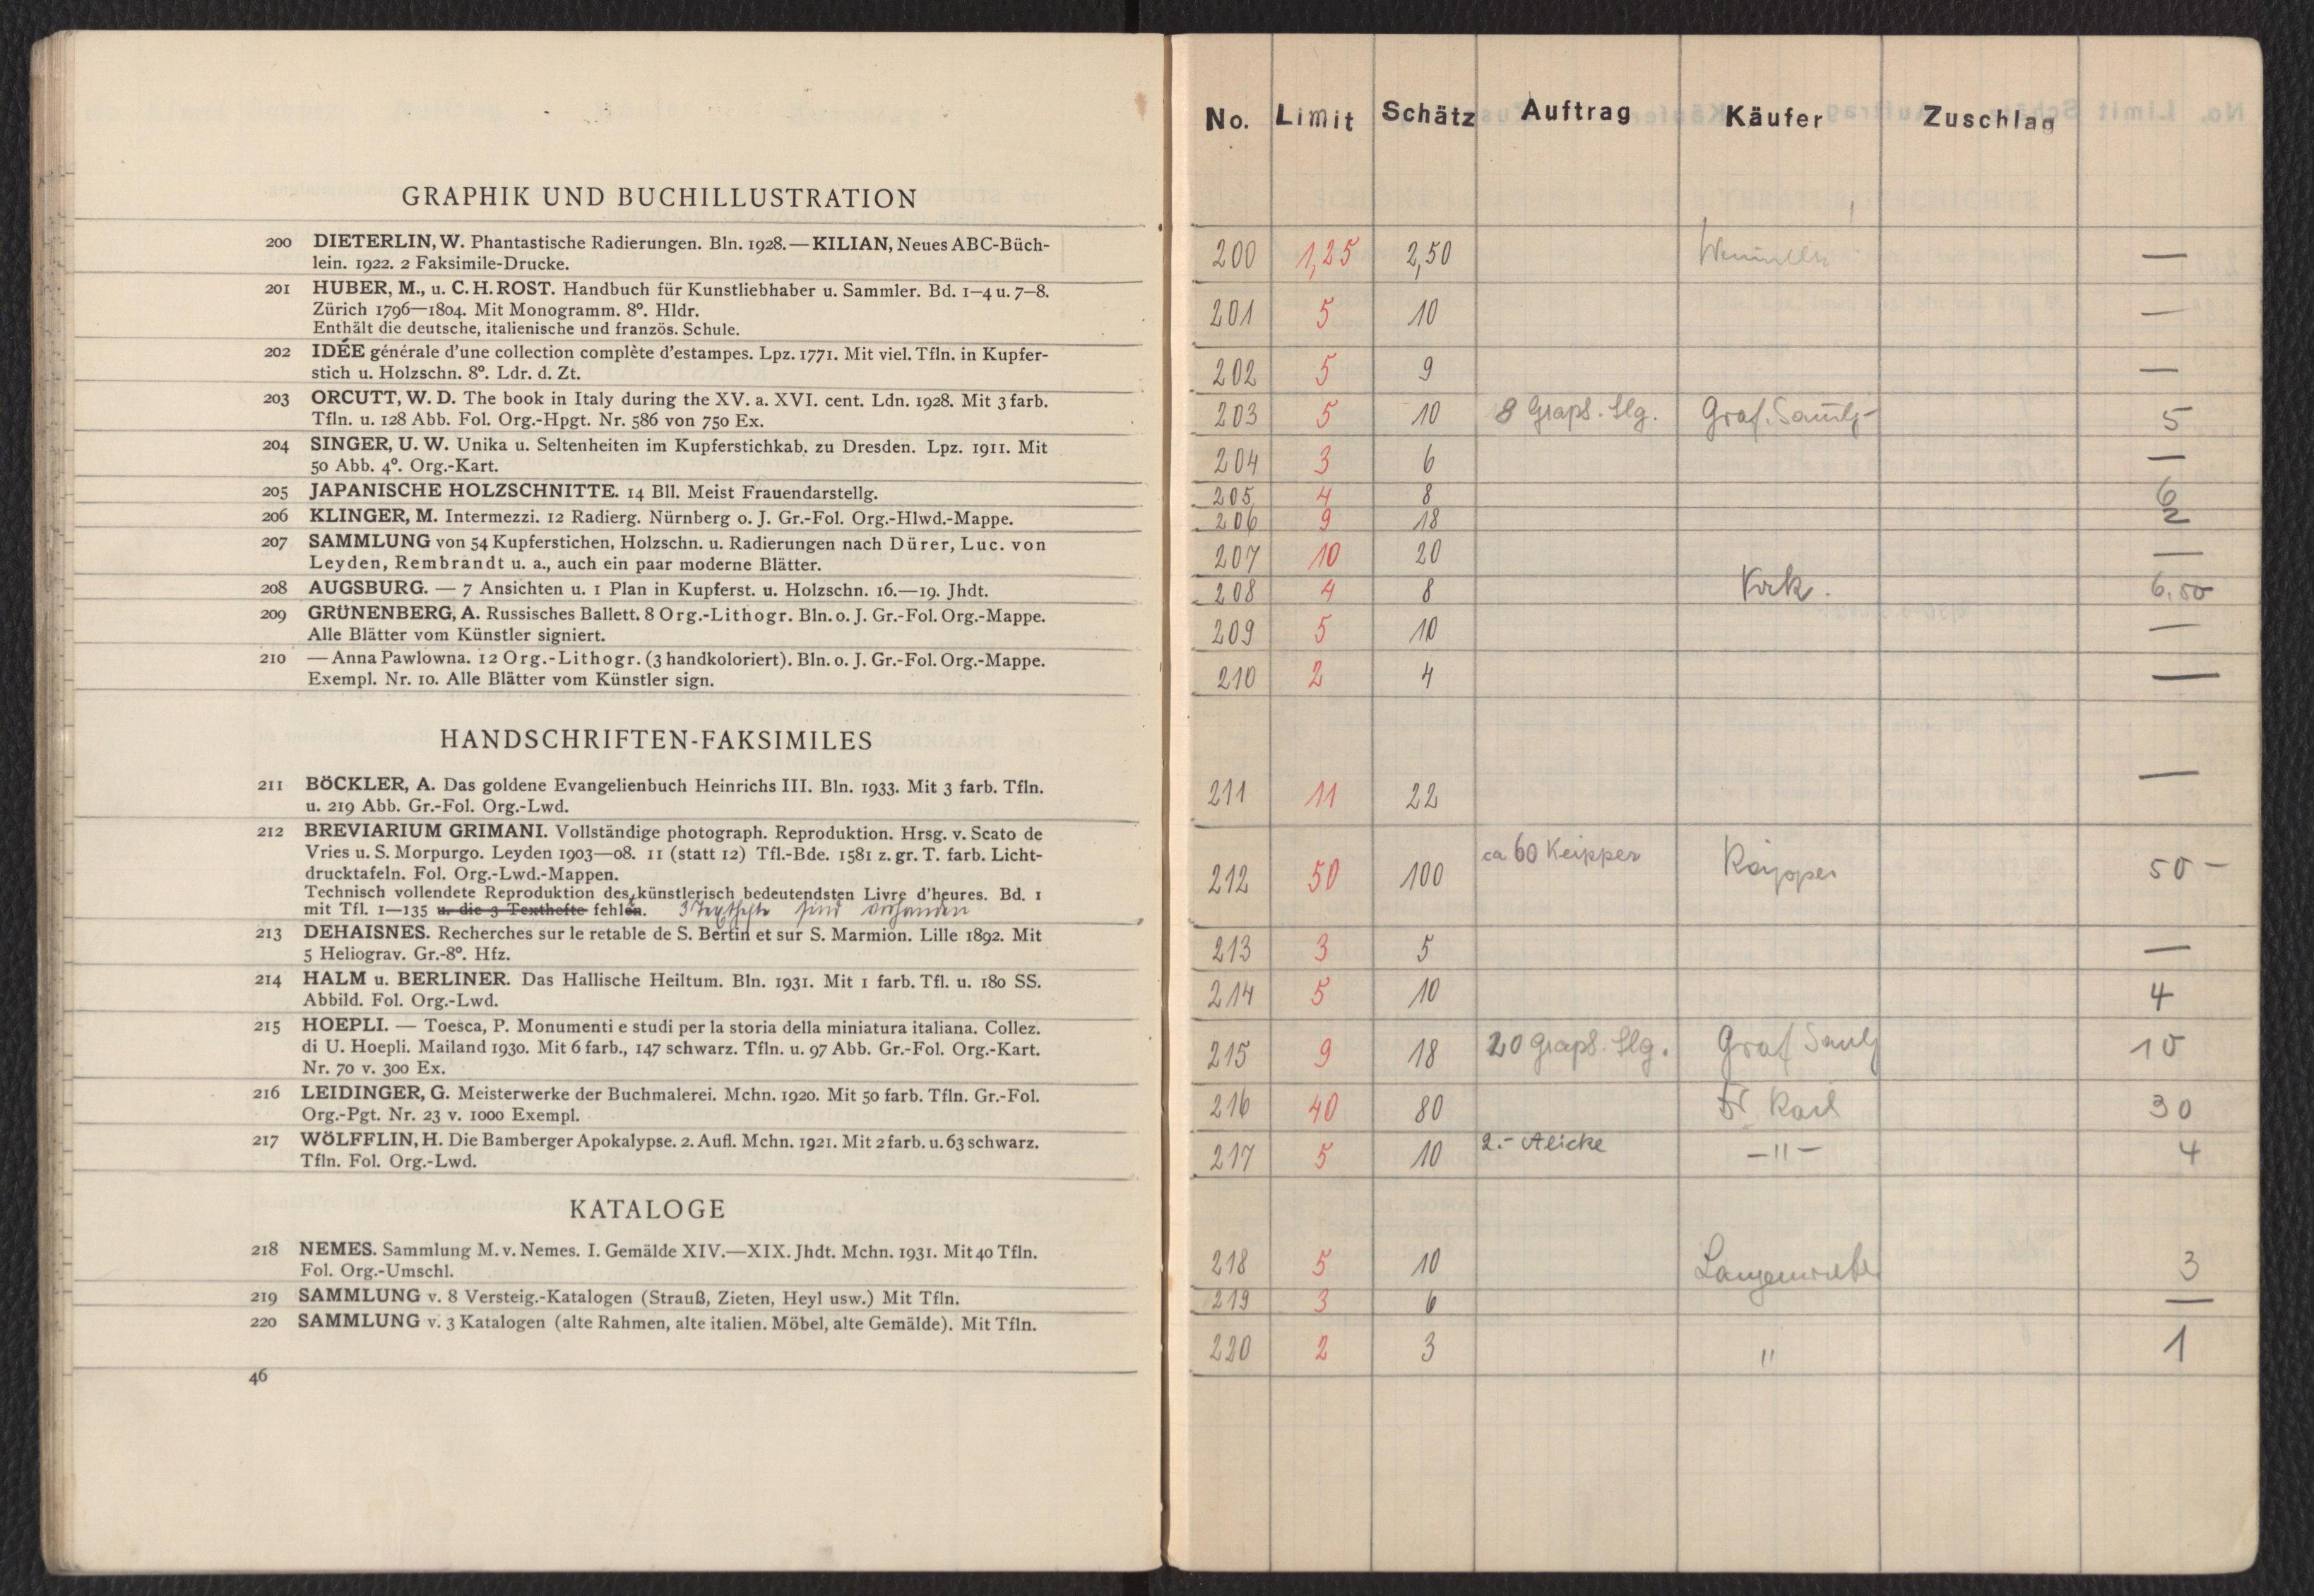 GRAPHIK UND BUCHILLUSTRATION
200 DIETERLIN, W. Phantastische Radierungen. Bln. 1928. — KILIAN, Neues ABC-Büch-
lein. 1922. 2 Faksimile-Drucke.
201 HUBER, M., u. C. H. ROST. Handbuch für Kunstliebhaber u. Sammler. Bd. 1—4 u. 7—8.
Zürich 1796—1804. Mit Monogramm. 8°. Hldr.
Enthält die deutsche, italienische und französ. Schule.
202 IDÉE générale d'une collection complète d'estampes. Lpz. 1771. Mit viel. Tfln. in Kupfer-
stich u. Holzschn. 8°. Ldr. d. Zt.
203 ORCUTT, W. D. The book in Italy during the XV. a. XVI. cent. Ldn. 1928. Mit 3 farb.
Tfln. u. 128 Abb. Fol. Org.-Hpgt. Nr. 586 von 750 Ex.
204 SINGER, U. W. Unika u. Seltenheiten im Kupferstichkab. zu Dresden. Lpz. 1911. Mit
50 Abb. 4°. Org.-Kart.
205 JAPANISCHE HOLZSCHNITTE. 14 Bll. Meist Frauendarstellg.
206 KLINGER, M. Intermezzi. 12 Radierg. Nürnberg o. J. Gr.-Fol. Org.-Hlwd.-Mappe.
207 SAMMLUNG von 54 Kupferstichen, Holzschn. u. Radierungen nach Dürer, Luc. von
Leyden, Rembrandt u. a., auch ein paar moderne Blätter.
208 AUGSBURG. — 7 Ansichten u. 1 Plan in Kupferst. u. Holzschn. 16.—19. Jhdt.
209 GRÜNENBERG, A. Russisches Ballett. 8 Org.-Lithogr. Bln. o. J. Gr.-Fol. Org.-Mappe.
Alle Blätter vom Künstler signiert.
210 — Anna Pawlowna. 12 Org.-Lithogr. (3 handkoloriert). Bln. o. J. Gr.-Fol. Org.-Mappe.
Exempl. Nr. 10. Alle Blätter vom Künstler sign.
HANDSCHRIFTEN-FAKSIMILES
211 BÖCKLER, A. Das goldene Evangelienbuch Heinrichs III. Bln. 1933. Mit 3 farb. Tfln.
u. 219 Abb. Gr.-Fol. Org.-Lwd.
212 BREVIARIUM GRIMANI. Vollständige photograph. Reproduktion. Hrsg. v. Scato de
Vries u. S. Morpurgo. Leyden 1903—08. 11 (statt 12) Tfl.-Bde. 1581 z. gr. T. farb. Licht-
drucktafeln. Fol. Org.-Lwd.-Mappen.
Technisch vollendete Reproduktion des künstlerisch bedeutendsten Livre d'heures. Bd. 1
mit Tfl. 1—135 u. die 3 Texthefte fehlen. 3 Texthefte sind vorhanden
213 DEHAISNES. Recherches sur le retable de S. Bertin et sur S. Marmion. Lille 1892. Mit
5 Heliograv. Gr.-8°. Hfz.
214 HALM u. BERLINER. Das Hallische Heiltum. Bln. 1931. Mit 1 farb. Tfl. u. 180 SS.
Abbild. Fol. Org.-Lwd.
215 HOEPLI. — Toesca, P. Monumenti e studi per la storia della miniatura italiana. Collez.
di U. Hoepli. Mailand 1930. Mit 6 farb., 147 schwarz. Tfln. u. 97 Abb. Gr.-Fol. Org.-Kart.
Nr. 70 v. 300 Ex.
216 LEIDINGER, G. Meisterwerke der Buchmalerei. Mchn. 1920. Mit 50 farb. Tfln. Gr.-Fol.
Org.-Pgt. Nr. 23 v. 1000 Exempl.
217 WÖLFFLIN, H. Die Bamberger Apokalypse. 2. Aufl. Mchn. 1921. Mit 2 farb. u. 63 schwarz.
Tfln. Fol. Org.-Lwd.
KATALOGE
218 NEMES. Sammlung M. v. Nemes. I. Gemälde XIV.—XIX. Jhdt. Mchn. 1931. Mit 40 Tfln.
Fol. Org.-Umschl.
219 SAMMLUNG v. 8 Versteig.-Katalogen (Strauß, Zieten, Heyl usw.) Mit Tfln.
220 SAMMLUNG v. 3 Katalogen (alte Rahmen, alte italien. Möbel, alte Gemälde). Mit Tfln.
46
No. Limit Schätz Auftrag Käufer Zuschlag
200 1,25 2,50 —
201 5 10 —
202 5 9 —
203 5 10 8 Graph. Slg. Graf. Samlg 5
204 3 6 —
205 4 8 6
206 9 18 2
207 10 20 —
208 4 8 6,50
209 5 10 —
210 2 4 —
211 11 22 —
212 50 100 ca 60 Keipper Käpper 50 —
213 3 5 —
214 5 10 4
215 9 18 20 Graph. Slg. Graf 10
216 40 80 Dr Karl 30
217 5 10 2.- Alicke —"— 4
218 5 10 3
219 3 6 —
220 2 3 " 1